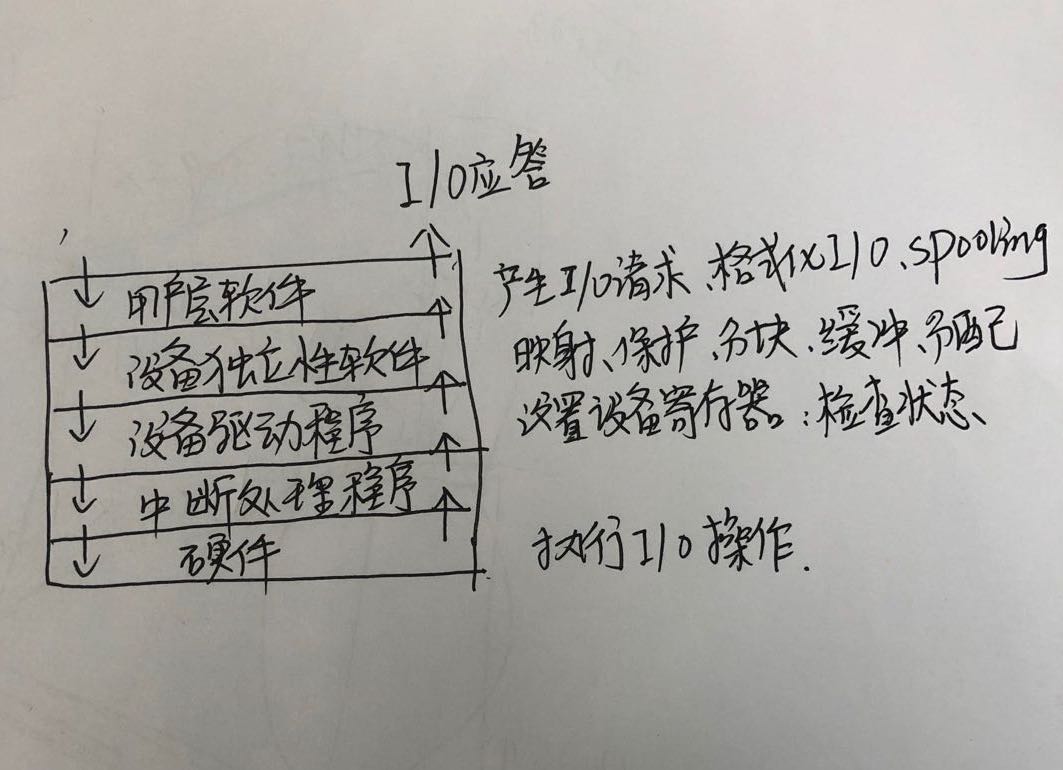 I/O应答
用户层软件 产生I/O请求、格式化I/O、spooling
设备独立性软件 映射、保护、分块、缓冲、分配
设备驱动程序 设置设备寄存器:检查状态
中断处理程序
硬件 执行I/O操作.